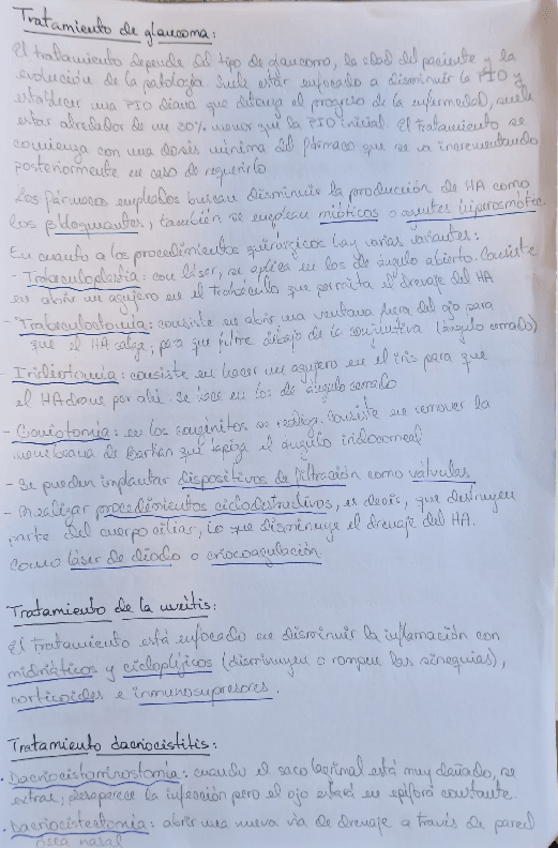 Tratamiento de glaucoma:
El tratamiento depende del tipo de glaucoma, la edad del paciente y la
evolución de la patología. Suele estar enfocado a disminuir la PIO y
establecer una PIO diana que detenga el progreso de la enfermedad, suele
estar alrededor de un 30% menor que la PIO inicial. El tratamiento se
comienza con una dosis mínima del fármaco que se va incrementando
posteriormente en caso de requerirlo
Los fármacos empleados buscan disminuir la producción de HA como
los βbloqueantes, también se emplean mióticos o agentes hiperosmótic
En cuanto a los procedimientos quirúrgicos hay varias variantes:
- Trabeculoplastia: con láser, se aplica en los de ángulo abierto. Consiste
en abrir un agujero en el trabéculo que permita el drenaje del HA
- Trabeculectomía: consiste en abrir una ventana fuera del ojo para
que el HA salga, para que filtre debajo de la conjuntiva (ángulo cerrado)
- Iridictomía: consiste en hacer un agujero en el iris para que
el HA drene por ahí. Se usa en los de ángulo cerrado
- Goniotomía: en los congénitos se realiza. Consiste en remover la
membrana de Barkan que tapiza el ángulo iridocorneal
- Se pueden implantar dispositivos de filtración como válvulas
- Realizar procedimientos ciclodestructivos, es decir, que destruyen
parte del cuerpo ciliar, lo que disminuye el drenaje del HA.
Como láser de diodo o criocoagulación.
Tratamiento de la uveítis:
El tratamiento está enfocado en disminuir la inflamación con
midriáticos y ciclopléjicos (disminuyen o rompen las sinequias),
corticoides e inmunosupresores.
Tratamiento dacriocistitis:
. Dacriocistorrinostomía: cuando el saco lagrimal está muy dañado, se
extrae, desaparece la infección pero el ojo estará en epífora constante.
. Dacriocistectomía: abrir una nueva vía de drenaje a través de pared
ósea nasal